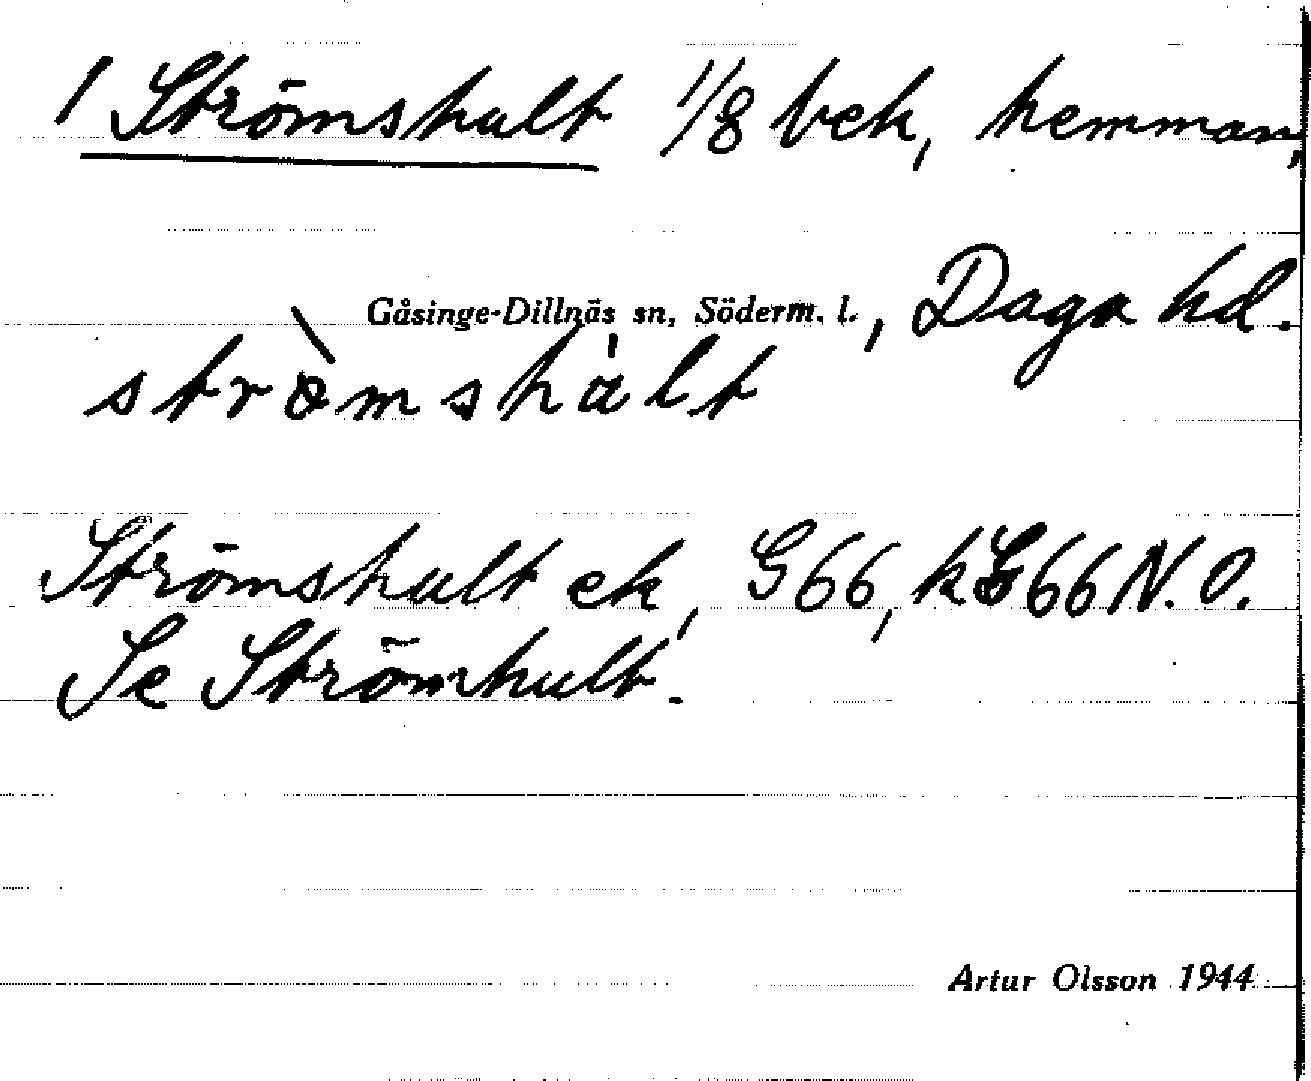 1 Strömshult 1/8 bek, hemman,
Gåsinge-Dillnäs sn, Söderm. l., Daga hd.
strömshalt
Strömshult ek, G66, kG66 N.O.
Se Strömhult.
Artur Olsson 1944